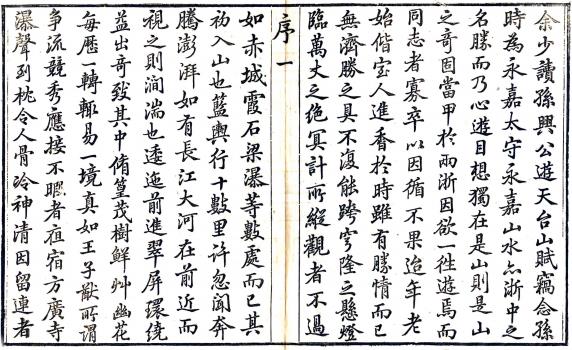 余少讀孫興公遊天台山賦竊念孫
時為永嘉太守永嘉山水亦浙中之
名勝而乃心遊目想獨在是山則是山
之奇固當甲於兩浙因欲一徃遊焉而
同志者寡卒以因循不果迨年老
始偕室人進香於時雖有勝情而已
無濟勝之具不復能跨穹隆之懸燈
臨萬丈之絕冥計所縱觀者不過
序一
如赤城霞石梁瀑等數處而已其
初入山也籃輿行十數里許忽聞奔
騰澎湃如有長江大河在前近而
視之則澗湍也逶迤前進翠屏環繞
益出奇致其中脩篁茂樹鮮艸幽花
每歷一轉輒易一境真如王子猷所謂
爭流競秀應接不暇者洎宿方廣寺
瀑聲到枕令人骨冷神清因留連者